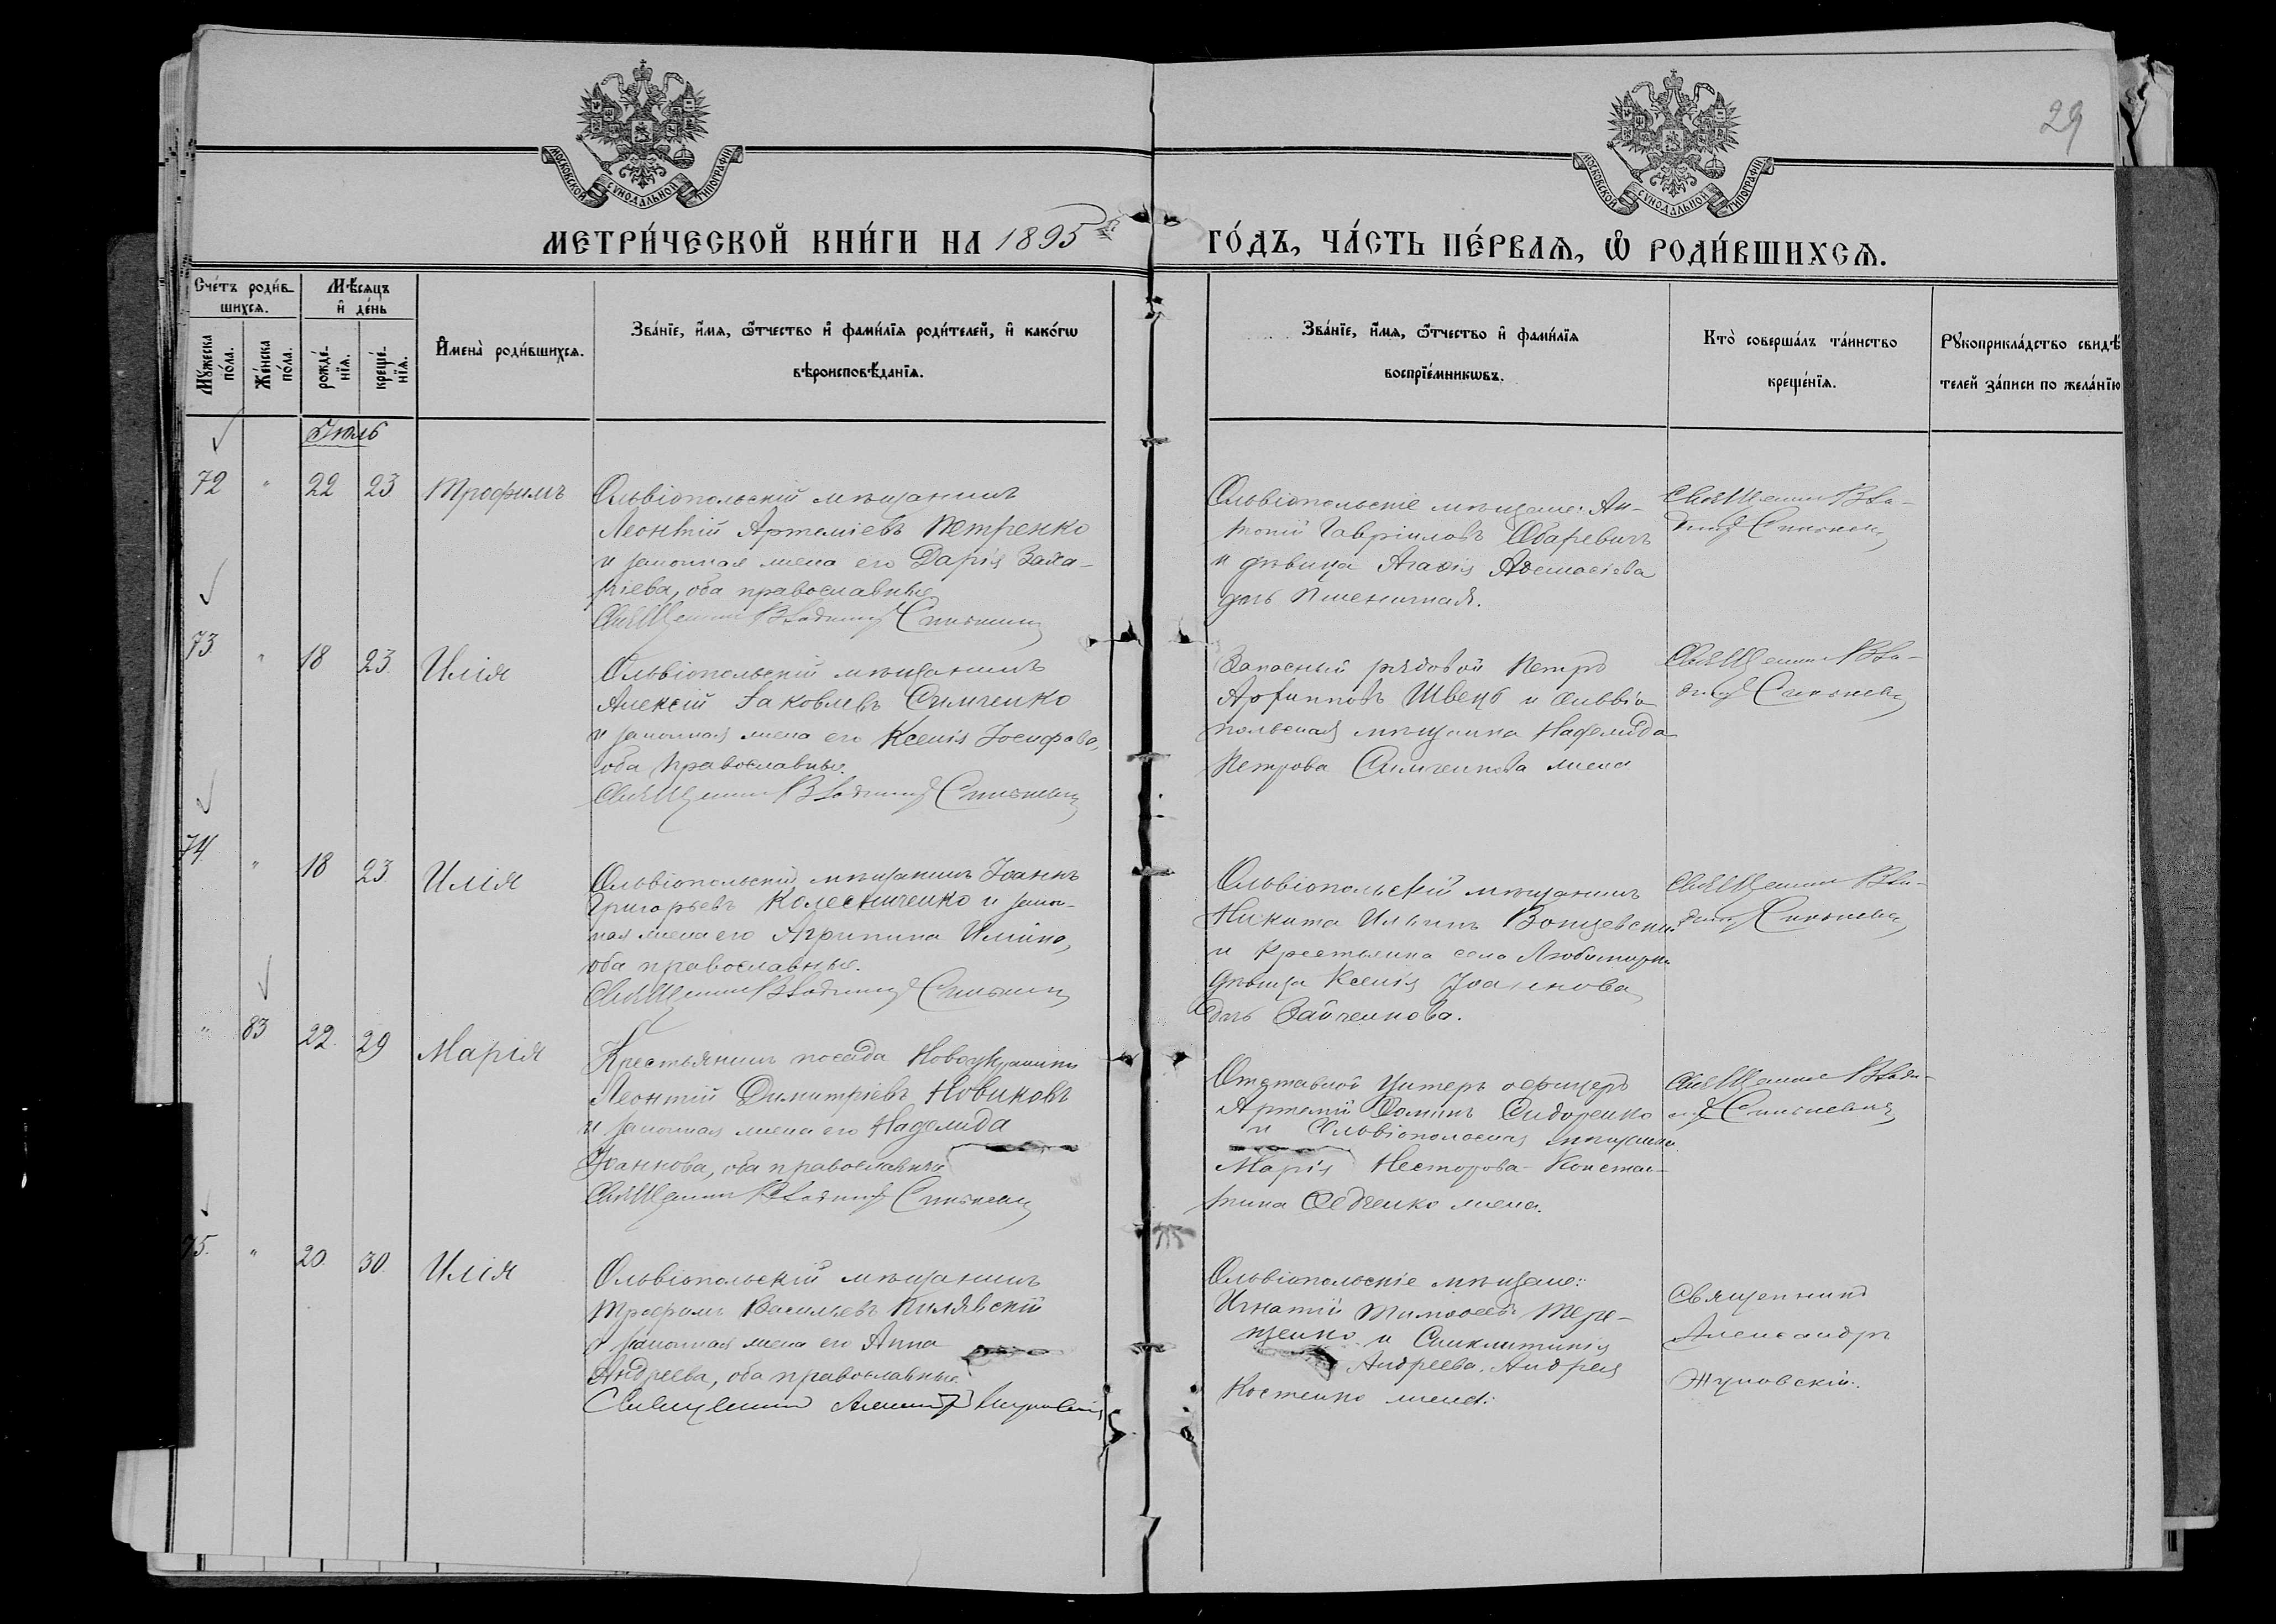 29
МОСКОВСКОЙ СѴНОДАЛЬНОЙ ТИПОГРАФІИ
МОСКОВСКОЙ СѴНОДАЛЬНОЙ ТИПОГРАФІИ
МЕТРИ́ЧЕСКОЙ КНИ́ГИ НА 1895 ГО́ДЪ, ЧА́СТЬ ПЕ́РВАѦ, Ѡ РОДИ́ВШИХСѦ.
Сче́тъ роди́в
шихсѧ.
Мѣ́сѧцъ
и҆ де́нь
Мꙋ́жеска по́ла.
Же́нска по́ла.
рожде́нїѧ.
креще́нїѧ.
И҆мена̀ роди́вшихсѧ.
Зва́нїе, и҆́мѧ, ѻ҆́тчество и҆ фами́лїѧ роди́телей, и҆ како́гѡ
вѣроисповѣ́данїѧ.
Зва́нїе, и҆́мѧ, ѻ҆́тчество и҆ фами́лїѧ
воспрїе́мникѡвъ.
Кто̀ соверша́лъ та́инство
креще́нїѧ.
Рꙋкоприкла́дство свидѣ́
телей за́писи по жела́нїю
Іюль
72 " 22 23 Трофимъ
Ольвіопольскій мѣщанинъ
Леонтій Артеміевъ Петренко
и законная жена его Дарія Заха-
ріева, оба православные
Священникъ Владимір
Ольвіопольскіе мѣщане: Ан-
тоній Гавріиловъ Обаревичъ
и дѣвица Агафія
дочь Пшеничная.
Священникъ Вла-
73 " 18 23 Илія
Ольвіопольскій мѣщанинъ
Алексій Іаковлевъ Симченко
и законная жена его Ксенія Іосифова,
оба православные.
Священникъ Владимір
Запасный рядовой Петръ
Архипповъ Швецъ и Ольвіо
польская мѣщанка Надежда
Петрова Симченкова жена
Священникъ Вла-
74 " 18 23 Илія
Ольвіопольскій мѣщанинъ Іоаннъ
Григорьевъ Колесниченко и закон-
ная жена его Агрипина Иліина,
оба православные.
Священникъ Владимір
Ольвіопольскій мѣщанинъ
Никита Ильинъ
и крестьянка села
дѣвица Ксенія Іоаннова
дочь Зайченкова.
Священникъ Вла-
" 83 22 29 Марія
Крестьянинъ посада Новоукраинки
Леонтій Димитріевъ Новиковъ
и законная жена его Надежда
Іоаннова, оба православные
Священникъ Владимір
Отставной Унтеръ офицеръ
Артемій Фоминъ Сидоренко
и Ольвіопольская мѣщанка
Марія Несторова Констан-
тина Федченко жена.
Священникъ Влади-
75. " 20 30 Илія
Ольвіопольскій мѣщанинъ
Трофимъ Васильевъ
и законная жена его Анна
Андреева, оба православные.
Священникъ Александръ Жуковскій
Ольвіопольскіе мѣщане:
Игнатій Тимофеевъ Тере-
щенко и Синклитикія
Андреева Андрея
Костенко жена.
Священникъ
Александръ
Жуковскій.